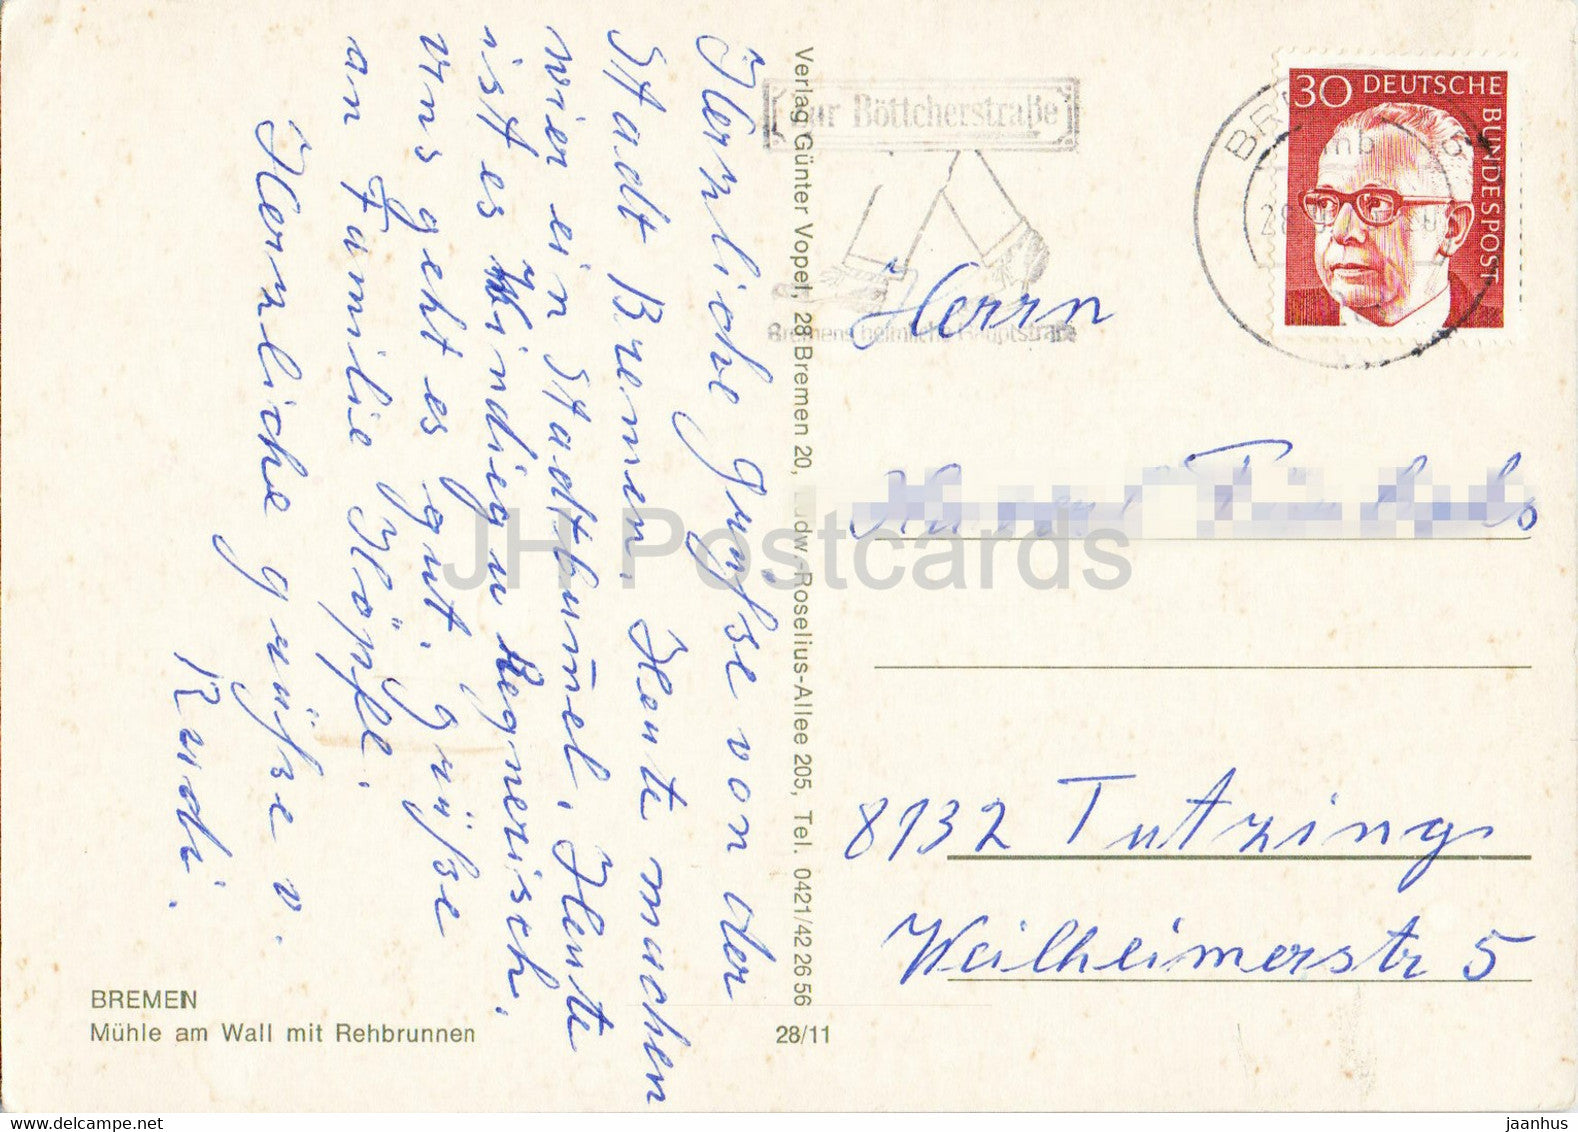 Herzliche Grüße von der
Stadt Bremen. Heute machen
wier ein Stadtbumel. Heute
ist es Windig u Regnerisch.
Uns geht es gut. grüße
an Familie Höpfl.
Herzliche grüße v.
Rudi.
BREMEN
Mühle am Wall mit Rehbrunnen
28/11
Verlag Günter Vopel, 28 Bremen 20, Ludw.-Roselius-Allee 205, Tel. 0421/42 26 56
Zur Böttcherstraße
Bremens heimliche Hauptstraße
30 DEUTSCHE
BUNDESPOST
Herrn
8132 Tutzing
Weilheimerstr 5
JH Postcards
delcampe.net
jaanhus